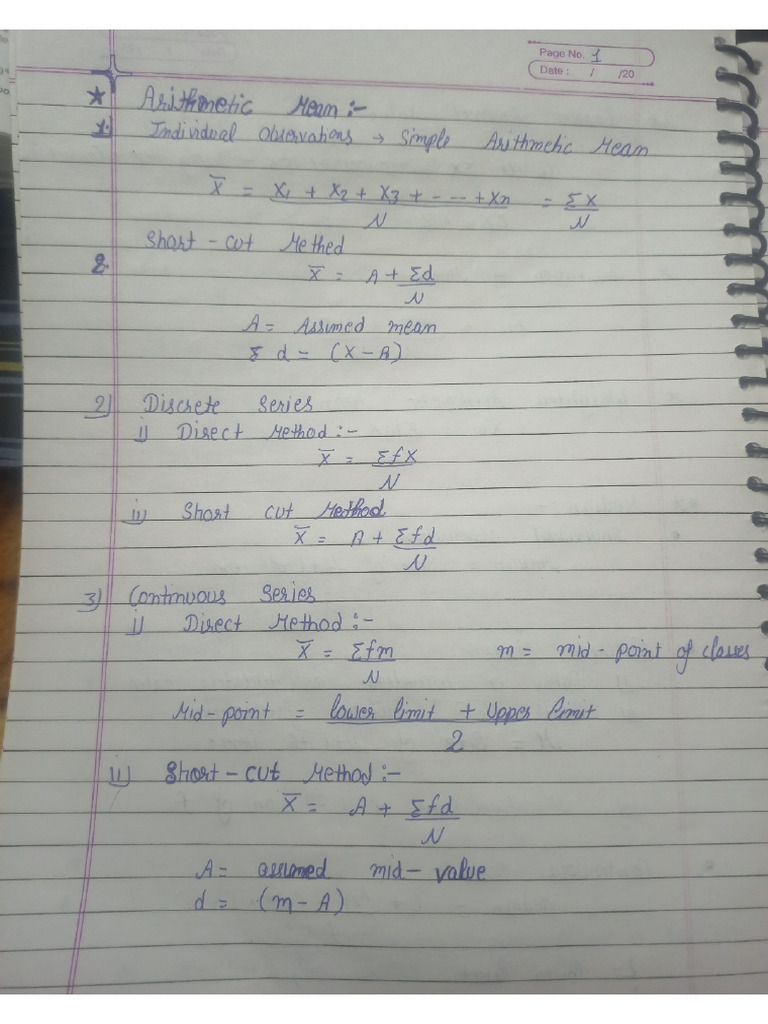 Page No. 1
Date : / /20
★ Arithmetic Mean :-
1. Individual Observations → Simple Arithmetic Mean
X̄ = X1 + X2 + X3 + - -- + Xn / N = ΣX / N
2. Short - cut Method
X̄ = A + Σd / N
A = Assumed mean
Σ d = (X - A)
2) Discrete Series
i) Direct Method :-
X̄ = ΣfX / N
ii) Short cut Method
X̄ = A + Σfd / N
3) Continuous Series
i) Direct Method :-
X̄ = Σfm / N m = mid - point of classes
Mid - point = lower limit + Upper limit / 2
ii) Short - cut Method :-
X̄ = A + Σfd / N
A = assumed mid - value
d = (m - A)